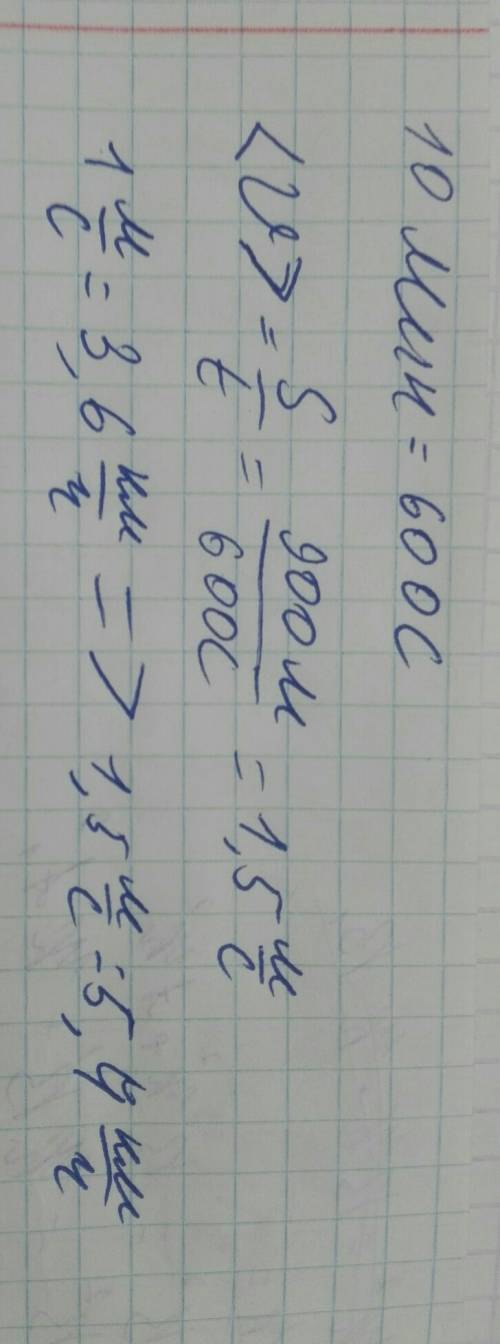 10 мин = 600с
<V> = S/t = 900м/600с = 1,5 м/с
1 м/с = 3,6 км/ч => 1,5 м/с = 5,4 км/ч